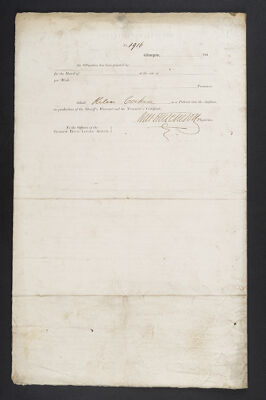 No. 1916
Glasgow, 184
An Obligation has been granted by
for the Board of at the rate of
per Week.
Treasurer.
Admit Helen Cochran as a Patient into the Asylum,
on production of the Sheriff's Warrant and the Treasurer's Certificate.
To the Officers of the
Glasgow Royal Lunatic Asylum.